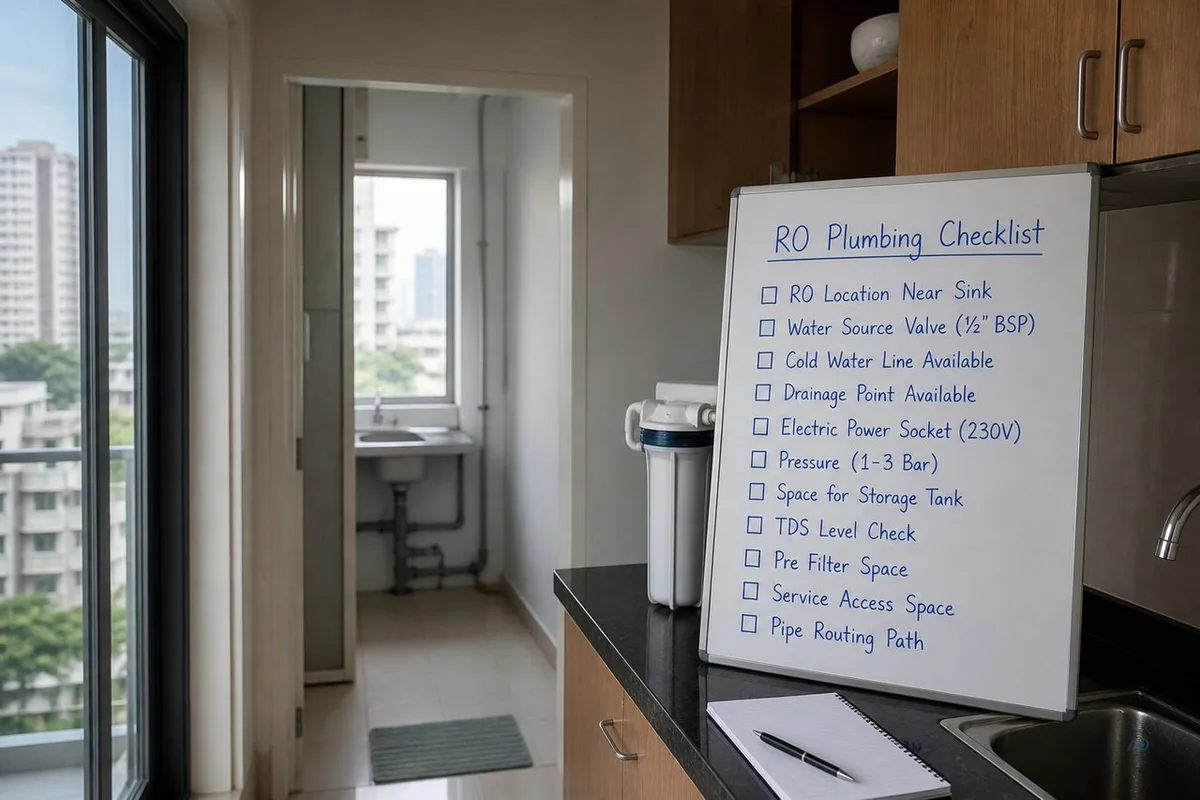 RO Plumbing Checklist
RO Location Near Sink
Water Source Valve (½" BSP)
Cold Water Line Available
Drainage Point Available
Electric Power Socket (230V)
Pressure (1-3 Bar)
Space for Storage Tank
TDS Level Check
Pre Filter Space
Service Access Space
Pipe Routing Path